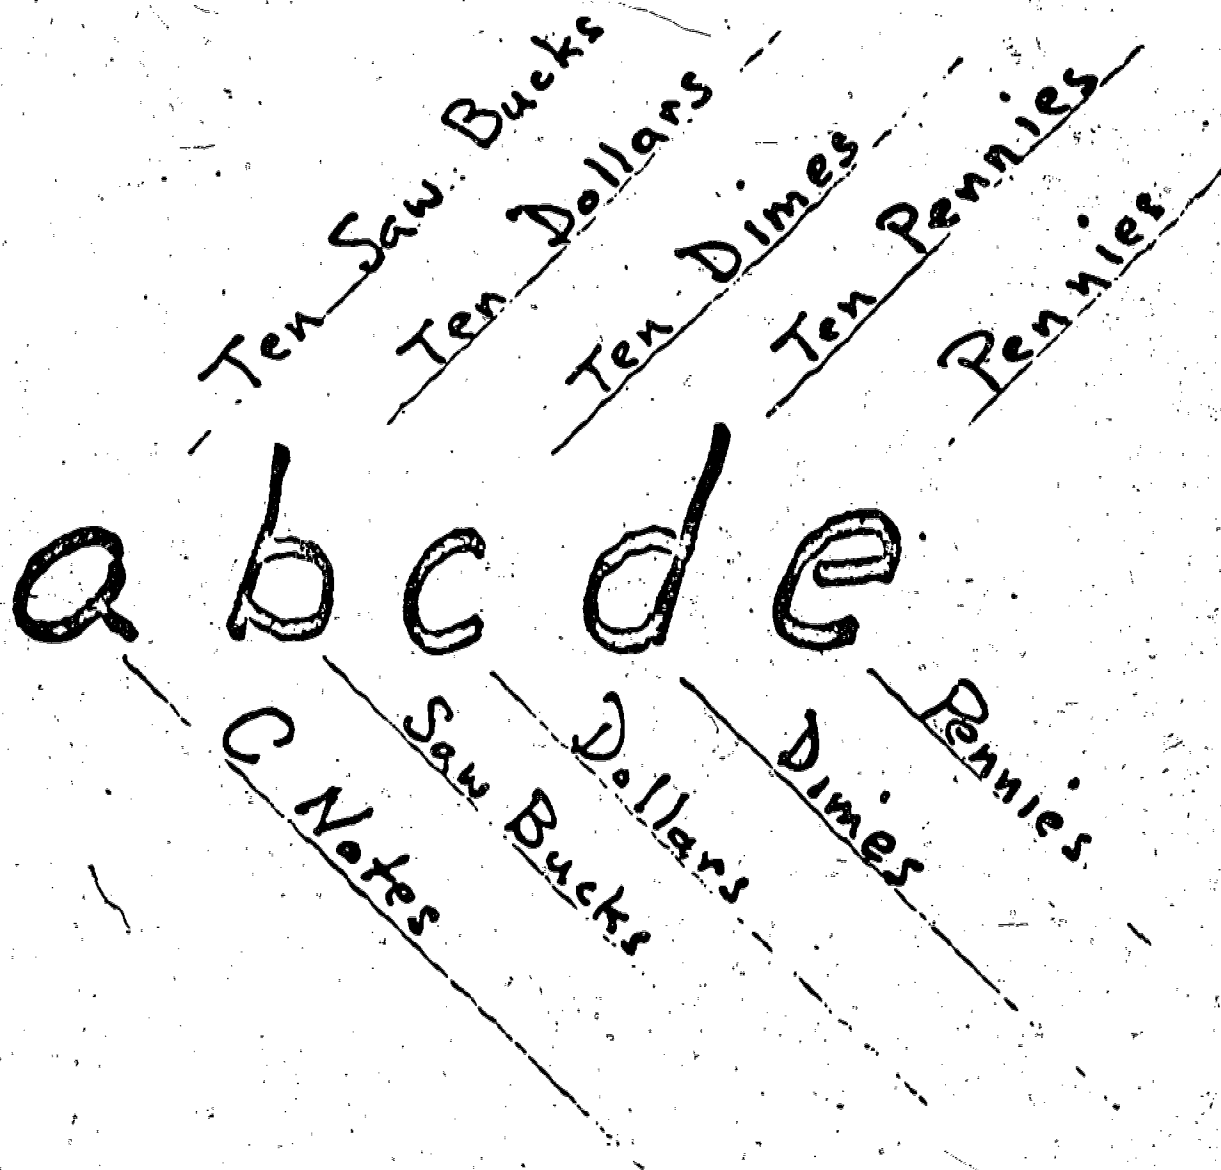 Ten Saw Bucks
Ten Dollars
Ten Dimes
Ten Pennies
Pennies
a b c d e
C Notes
Saw Bucks
Dollars
Dimes
Pennies